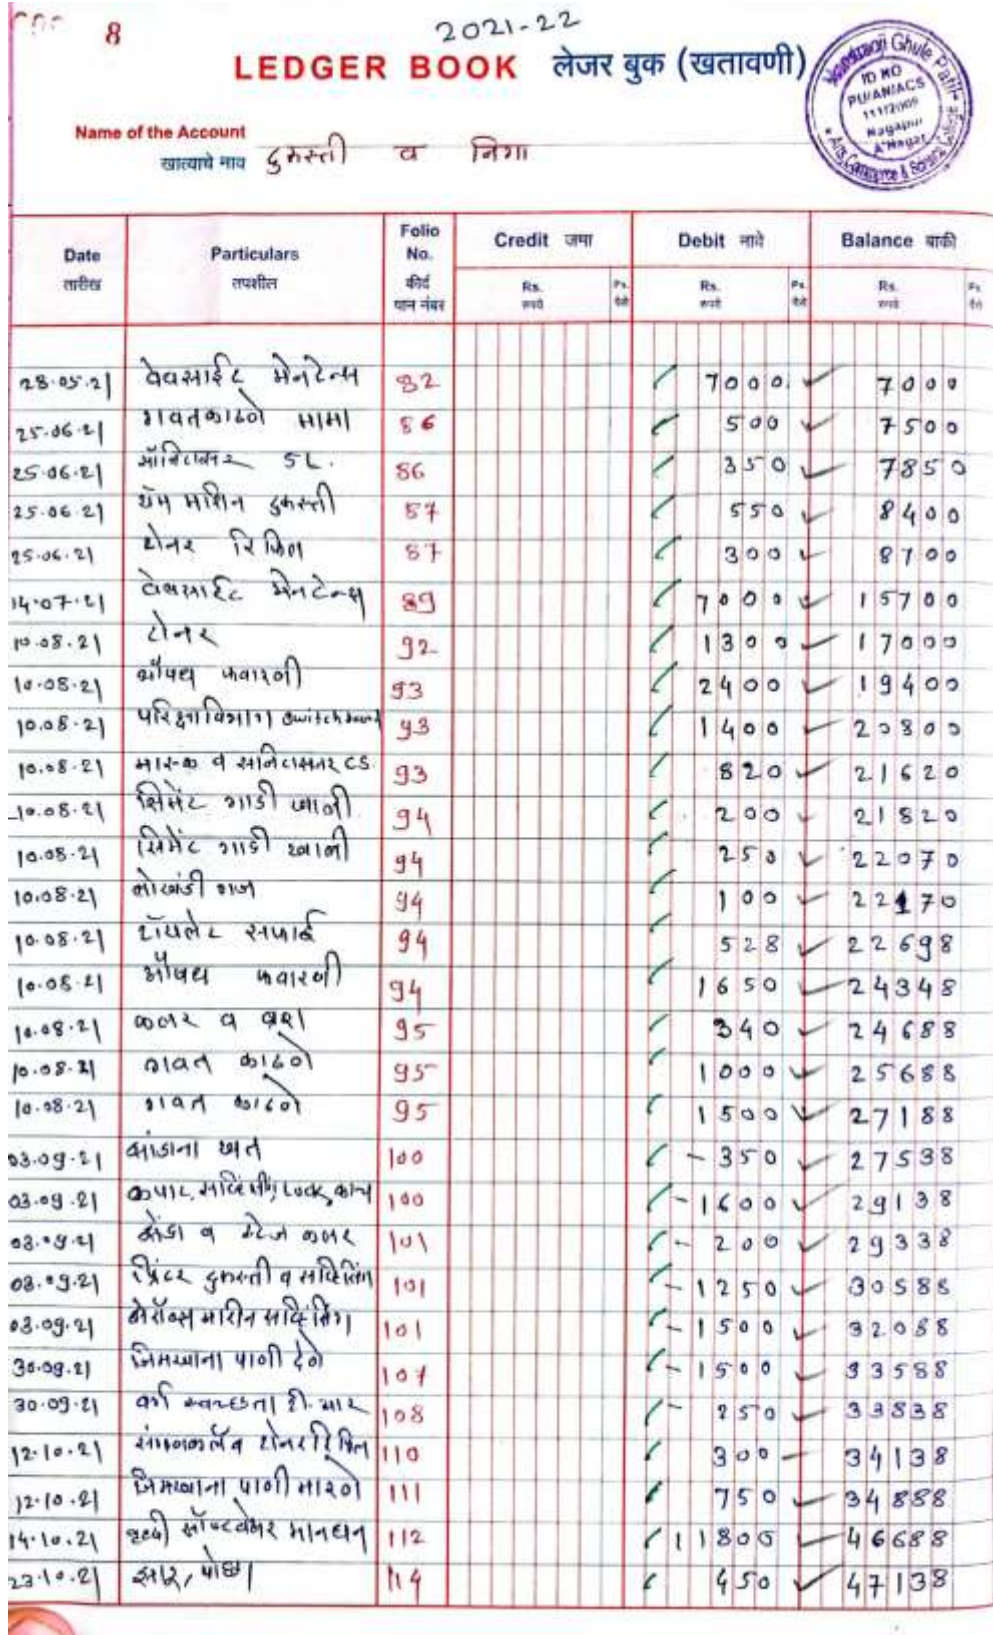 8
2021-22
LEDGER BOOK लेजर बुक (खतावणी)
Name of the Account
खात्याचे नाव दुरुस्ती व निगा
Ghule Patil
ID NO
PU/AN/ACS
Nagapur
A'Nagar
Arts, Commerce & Science College
Date Particulars Folio No. Credit जमा Debit नावे Balance बाकी
तारीख तपशील कीर्द पान नंबर Rs. रुपये Ps. पैसे Rs. रुपये Ps. पैसे Rs. रुपये Ps. पैसे
28.05.21 वेबसाईट मेनटेन्स 82 7000 7000
25.06.21 गवतकाढणे मामा 86 500 7500
25.06.21 सॅनिटायझर 5L. 86 350 7850
25.06.21 थंम मशिन दुरुस्ती 87 550 8400
25.06.21 टोनर रिफिल 87 300 8700
14.07.21 वेबसाईट मेनटेन्स 89 7000 15700
10.08.21 टोनर 92 1300 17000
10.08.21 औषध फवारणी 93 2400 19400
10.08.21 परिक्षाविभाग switch board 93 1400 20800
10.08.21 मास्क व सॅनिटायझर CS. 93 820 21620
10.08.21 सिमेंट गाडी खाली 94 200 21820
10.08.21 सिमेंट गाडी खाली 94 250 22070
10.08.21 लोखंडी गज 94 100 22170
10.08.21 टॉयलेट सफाई 94 528 22698
10.08.21 औषध फवारणी 94 1650 24348
10.08.21 कलर व ब्रश 95 340 24688
10.08.21 गवत काढणे 95 1000 25688
10.08.21 गवत काढणे 95 1500 27188
03.09.21 झाडाना खत 100 350 27538
03.09.21 कपाट, सर्व्हिसींग, Lock, काच 100 1600 29138
03.09.21 झेंडा व स्टेज कलर 101 200 29338
03.09.21 प्रिंटर दुरुस्ती व सर्व्हिसिंग 101 1250 30588
03.09.21 झेरॉक्स मशीन सर्व्हिसिंग 101 1500 32088
30.09.21 जिमखाना पाणी देणे 107 1500 33588
30.09.21 वर्ग स्वच्छता 108 250 33838
12.10.21 टोनर रिफिल 110 300 34138
12.10.21 जिमखाना पाणी मारणे 111 750 34888
14.10.21 सॉफ्टवेअर मानधन 112 11800 46688
23.10.21 झाडू, पोछा 114 450 47138